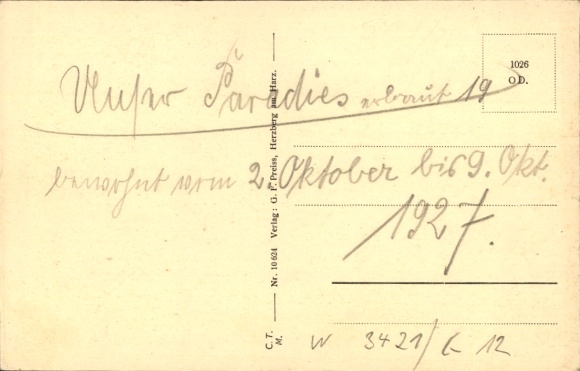 Unser Paradies erbaut 19
bewohnt vom 2. Oktober bis 9. Okt.
1927.
W 3421/G 12
1026
O D.
Nr. 10 624 Verlag: G. F. Preiss, Herzberg am Harz.
C. T.
M.